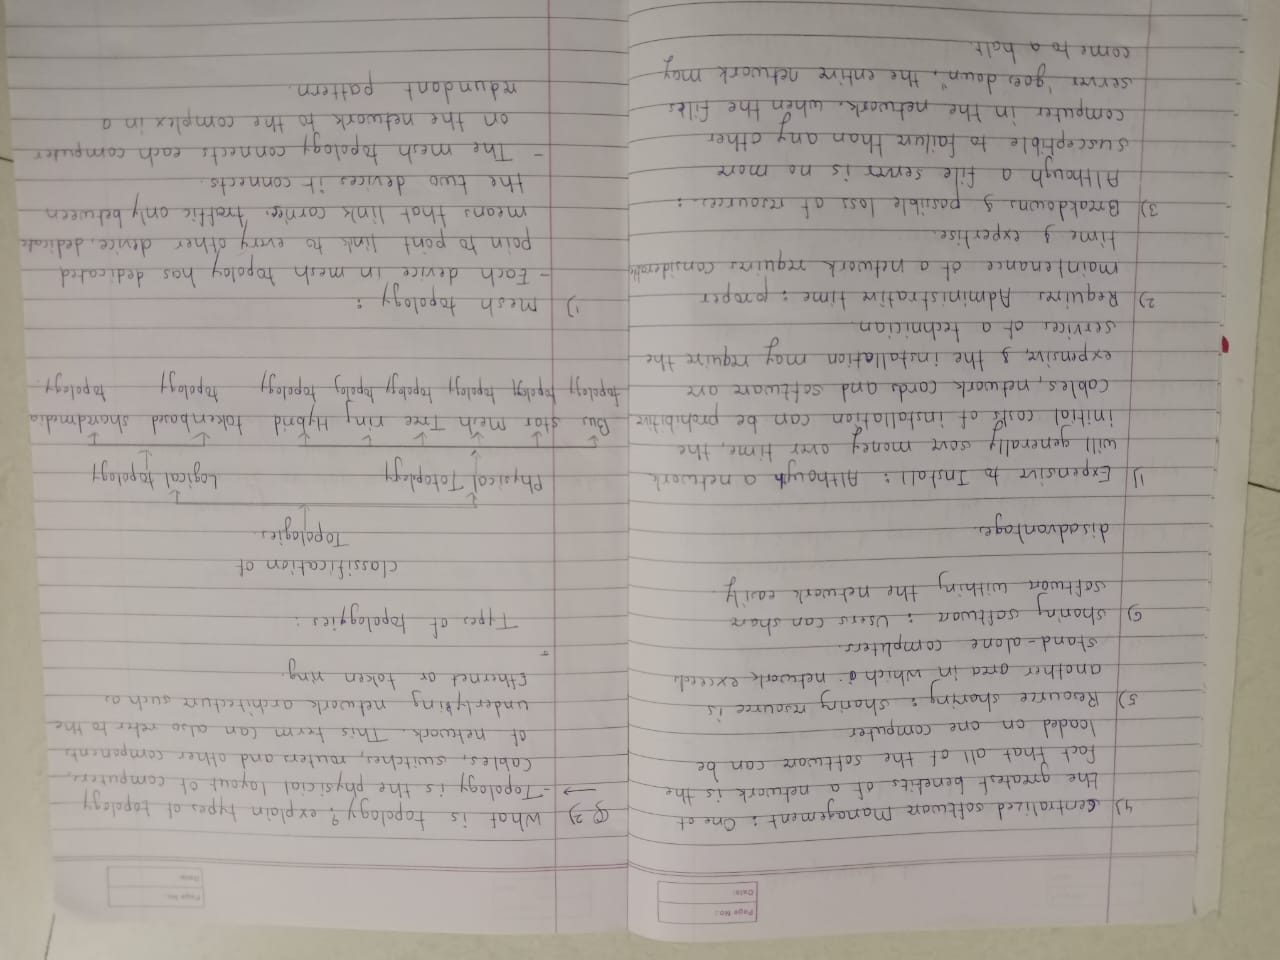 Page No.:
Date:
4) Centralized software Management : One of
the greatest benefits of a network is the
fact that all of the software can be
loaded on one computer
5) Resource sharing : sharing resource is
another area in which network exceeds
stand-alone computers.
6) sharing software : Users can share
software withing the network easily
disadvantages
1) Expensive to Install : Although a network
will generally save money over time, the
initial costs of installation can be prohibitive
cables, network cards and software are
expensive, & the installation may require the
services of a technician
2) Requires Administrative time : proper
maintenance of a network requires considerable
time & expertise.
3) Breakdowns & possible loss of resources :
Although a file server is no more
susceptible to failure than any other
computer in the network. when the files
server "goes down", the entire network may
come to a halt.
Page No.
Date:
Q 2) What is topology? explain types of topology
→ - Topology is the physicial layout of computers,
Cables, switches, routers and other components
of network. This term can also refer to the
underlying network architecture such as
Ethernet or token ring.
Types of topologgies :
classification of
Topologies
Physical Totoplogy Logical topology
Bus star mesh Tree ring Hybrid tokenbased sharedmedia
topology topology topology topology topolog topology topology topology
1) mesh topology :
- Each device in mesh topoloy has dedicated
poin to point link to every other device. dedicate
means that link carries traffic only between
the two devices it connects.
- The mesh topology connects each computer
on the network to the complex in a
redundant pattern.